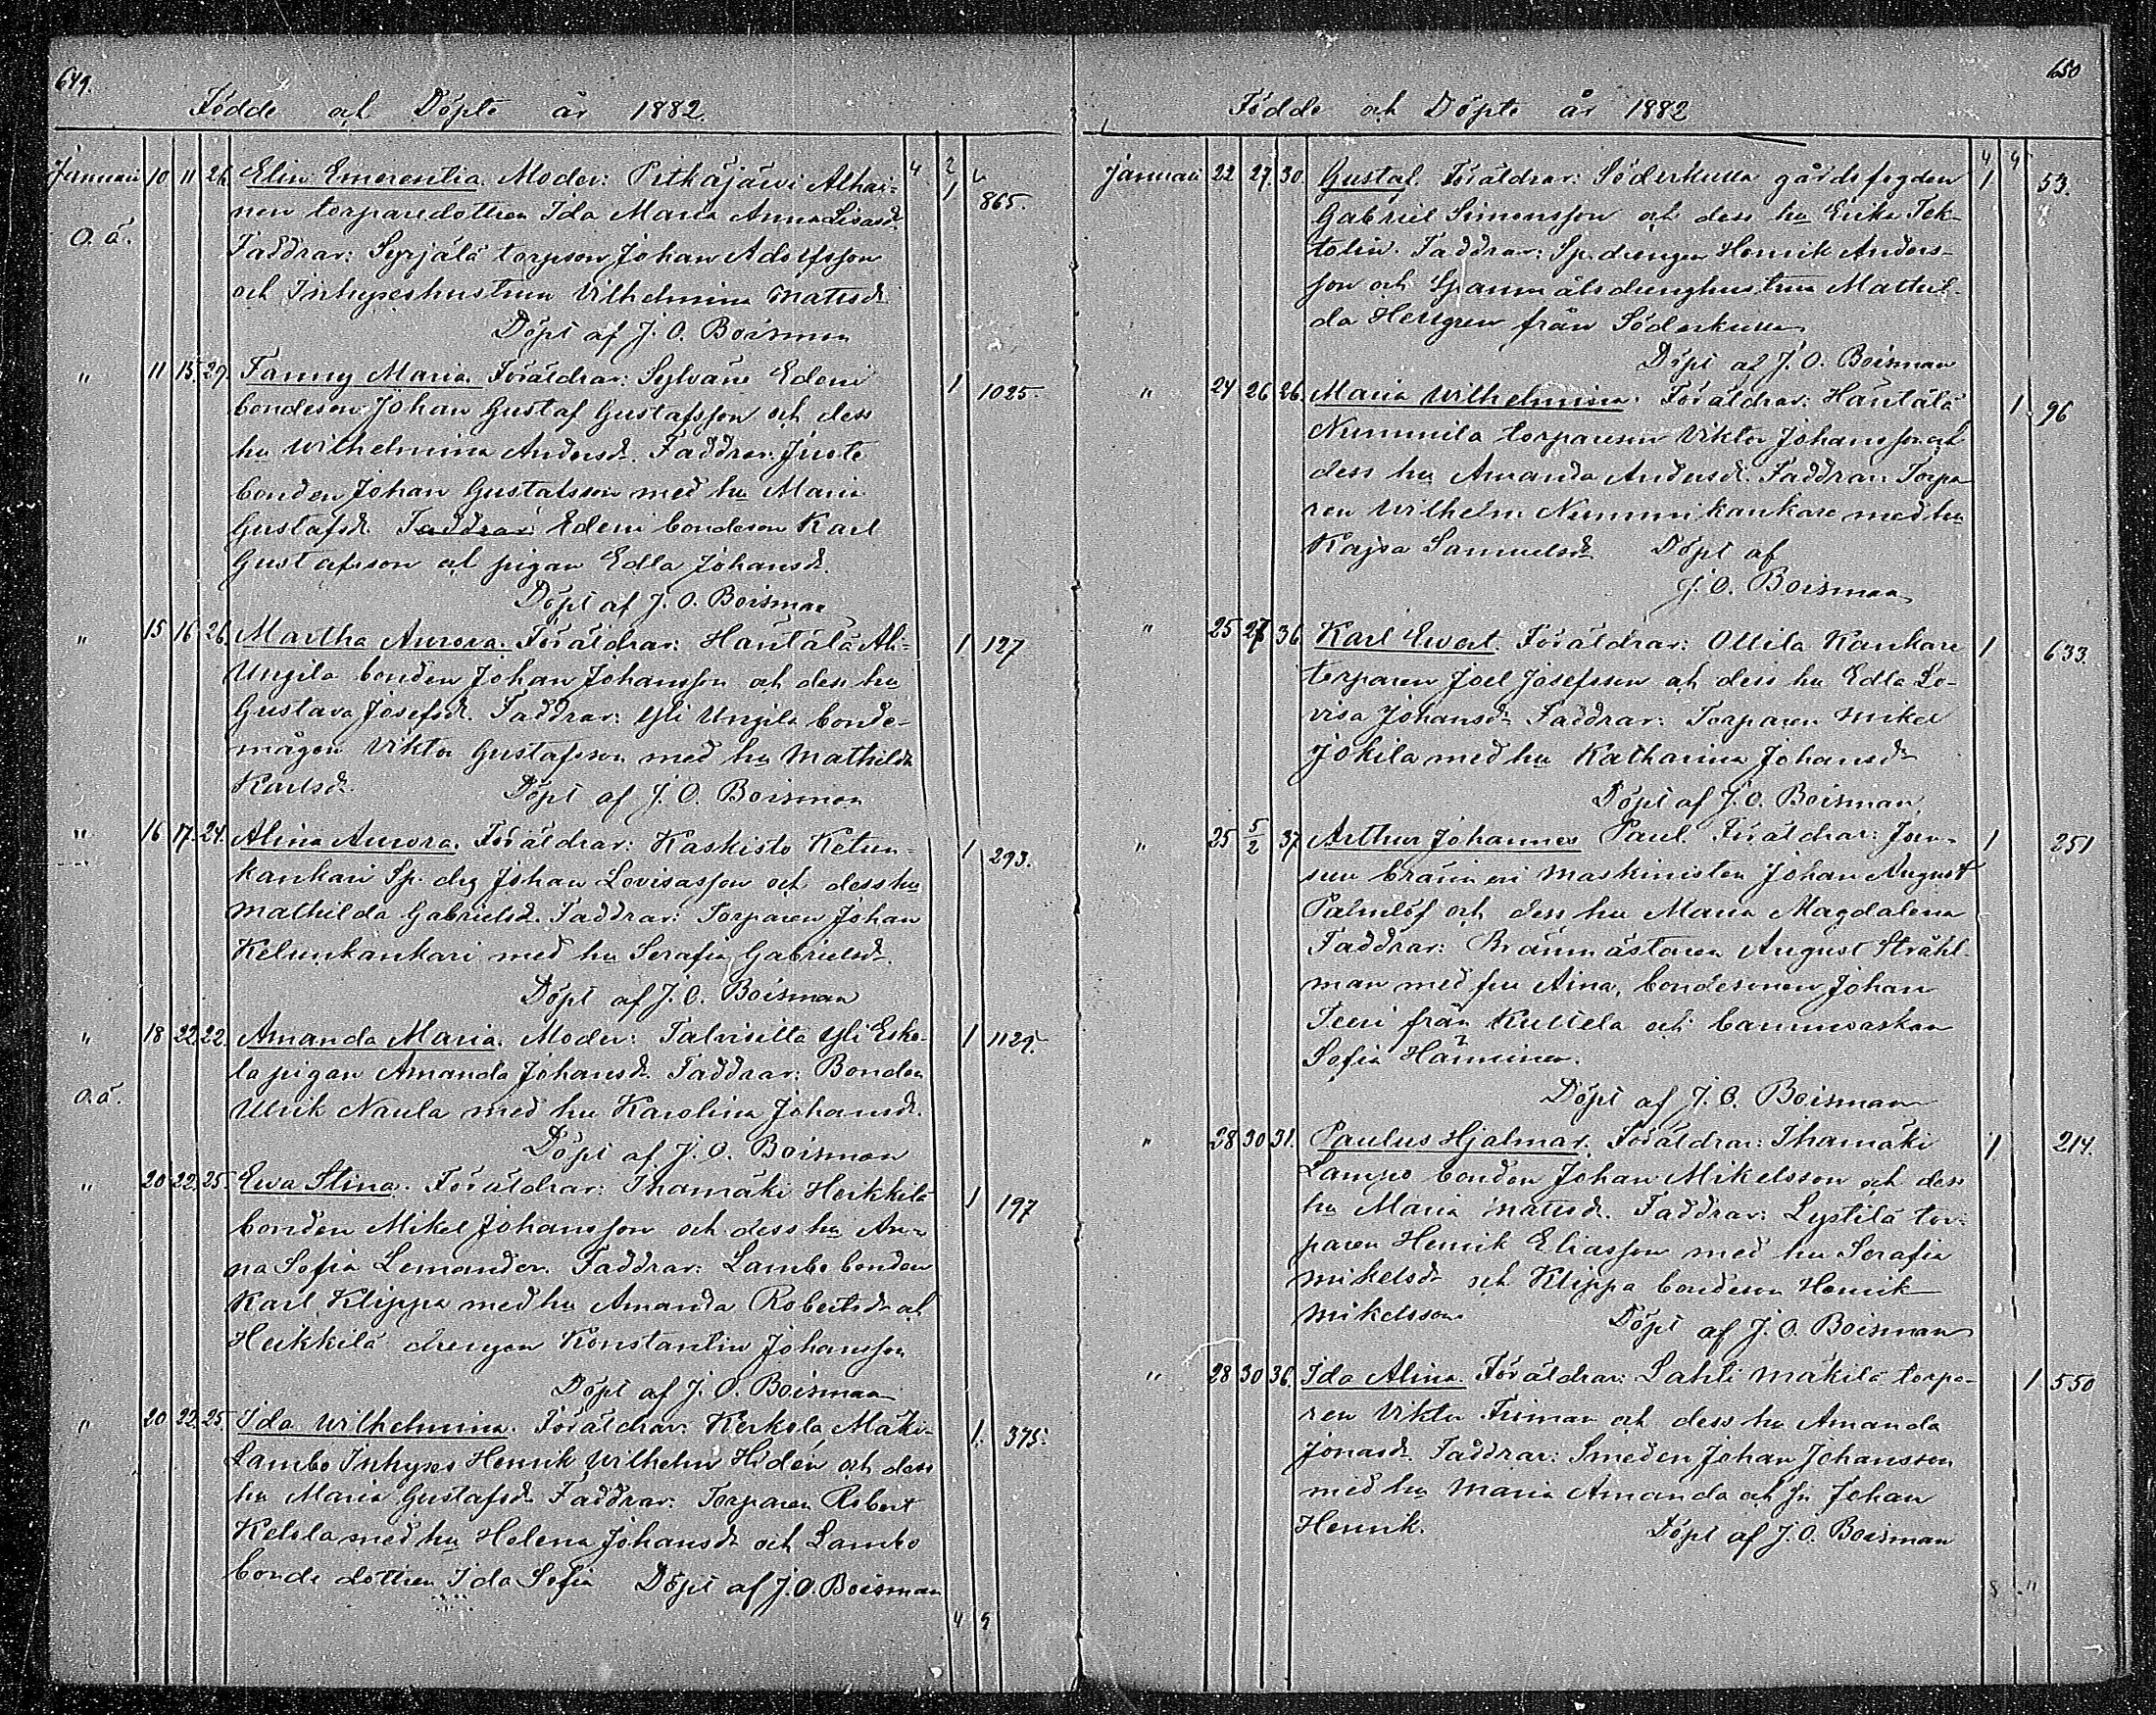 649.
Födde och Döpte år 1882.
Januari 10 11 26. Elin Emerentia. Moder: Pitkäjärvi Alhai-
nen torparedottren Ida Maria Anna Lisasdr. 1 865.
O. ä.
Faddrar: Syrjälä torpson Johan Adolfsson
och Inhyseshustrun Vilhelmina Matsdr
Döpt af J. O. Boisman
" 11 15. 29. Fanny Maria. Föräldrar: Sylvänä Edeni 1 1025.
bondeson Johan Gustaf Gustafsson och dess
hu Wilhelmina Andersdr. Faddrar: Juote
bonden Johan Gustafsson med hu Maria
Gustafsdr. Faddrar: Edeni bondeson Karl
Gustafsson och pigan Edla Johansdr.
Döpt af J. O. Boisman
" 15 16 26. Martha Aurora. Föräldrar: Hautälä Ali- 1 127
Ungila bonden Johan Johansson och dess hu
Gustava Josefsdr. Faddrar: Yli Ungila bonde-
mågen Viktor Gustafsson med hu Mathilda
Karlsdr. Döpt af J. O. Boisman
" 16 17. 24. Alina Aurora. Föräldrar: Kaskisto Ketun- 1 293.
kankari Sp. drg Johan Lovisasson och dess hu
Mathilda Gabrielsdr. Faddrar: Torparen Johan
Ketunkankari med hu Serafia Gabrielsdr.
Döpt af J. O. Boisman
" 18 22 22. Amanda Maria. Moder: Talvisilta Yli Esko- 1 1129.
la pigan Amanda Johansdr. Faddrar: Bonden
O. ä.
Ulrik Naula med hu Karolina Johansdr.
Döpt af J. O. Boisman
" 20 22. 25. Ewa Stina. Föräldrar: Ihamäki Heikkilä 1 197
bonden Mikel Johansson och dess hu An-
na Sofia Lemander. Faddrar: Lambo bonden
Karl Klippa med hu Amanda Robertsdr och
Heikkilä drengen Konstantin Johansson
Döpt af J. O. Boisman
" 20 22. 25. Ida Wilhelmina. Föräldrar: Kerkola Mäki- 1. 375.
Lambo Inhyses Henrik Wilhelm Hidén och dess
hu Maria Gustafsdr. Faddrar: Torparen Robert
Ketola med hu Helena Johansdr och Lambo
bonde dottren Ida Sofia Döpt af J. O. Boisman
4 5
650
Födde och Döpte år 1882
Januari 22 27. 30. Gustaf. Föräldrar: Söderkulla gårdsfogden 1. 53.
Gabriel Simonsson och dess hu Erika Tek-
tolin. Faddrar: Sp. drengen Henrik Anders-
son och Spannmålsdrenghustrun Mathil-
da Hellgren från Söderkulla
Döpt af J. O. Boisman
" 24 26 26. Maria Wilhelmina. Föräldrar: Hautälä 1. 96
Nummila torpareson Viktor Johansson och
dess hu Amanda Andersdr. Faddrar: Torpa
ren Wilhelm Nummikankare med hu
Kajsa Samuelsdr Döpt af
J. O. Boisman
" 25 27 36. Karl Ewert. Föräldrar: Ollila Kankare 1 633.
torparen Joel Josefsson och dess hu Edla Lo-
visa Johansdr Faddrar: Torparen Mikel
Jokila med hu Katharina Johansdr
Döpt af J. O. Boisman
" 25 5/2 37 Arthur Johannes Paul. Föräldrar: Joen- 1 251
suu bränneri maskinisten Johan August
Palmlöf och dess hu Maria Magdalena
Faddrar: Brännmästaren August Stråhl-
man med fru Aina, bondesonen Johan
Teeri från Kullela och barnmorskan
Sofia Hänninen.
Döpt af J. O. Boisman
" 28 30 31. Paulus Hjalmar. Föräldrar: Ihamäki 1 214.
Lampo bonden Johan Mikelsson och dess
hu Maria Matsdr. Faddrar: Lystilä tor-
paren Henrik Eliasson med hu Serafia
Mikelsdr och Klippa bondeson Henrik
Mikelsson Döpt af J. O. Boisman
" 28 30 36. Ida Alina. Föräldrar: Lahti Mäkilä torpa- 1 550
ren Viktor Friman och dess hu Amanda
Jonasdr. Faddrar: Smeden Johan Johansson
med hu Maria Amanda och Johan
Henrik. Döpt af J. O. Boisman